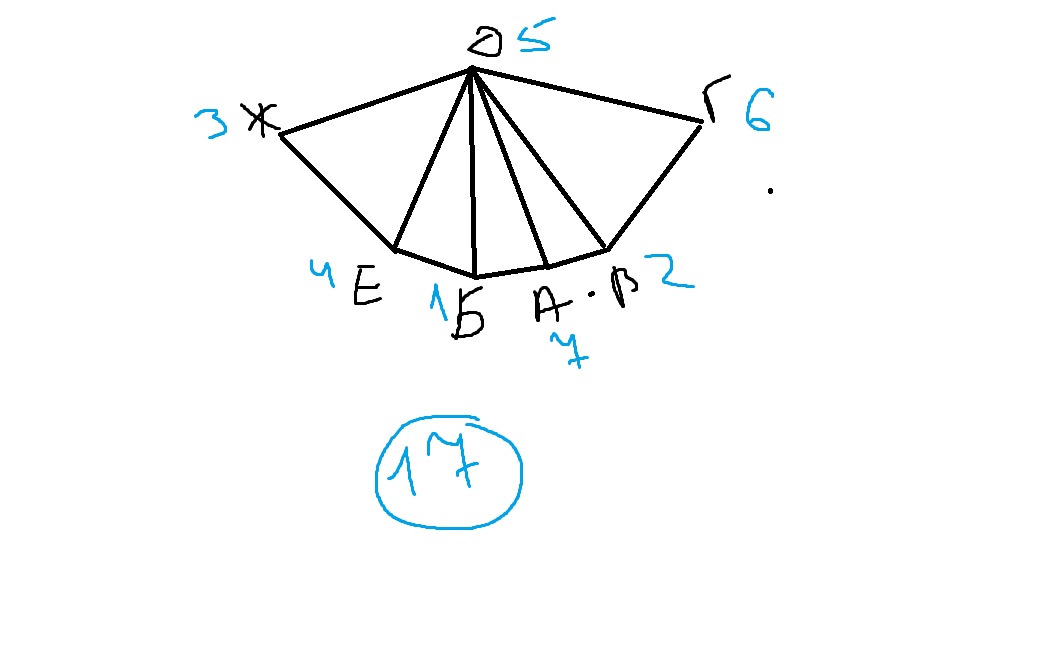 Д 5
3 Ж Г 6
4 Е 1 Б А В 2
7
17